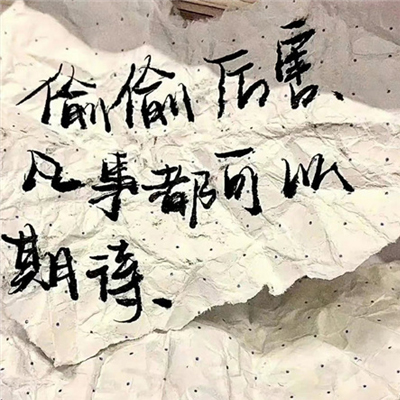 偷偷厉害、
凡事都可以
期待、